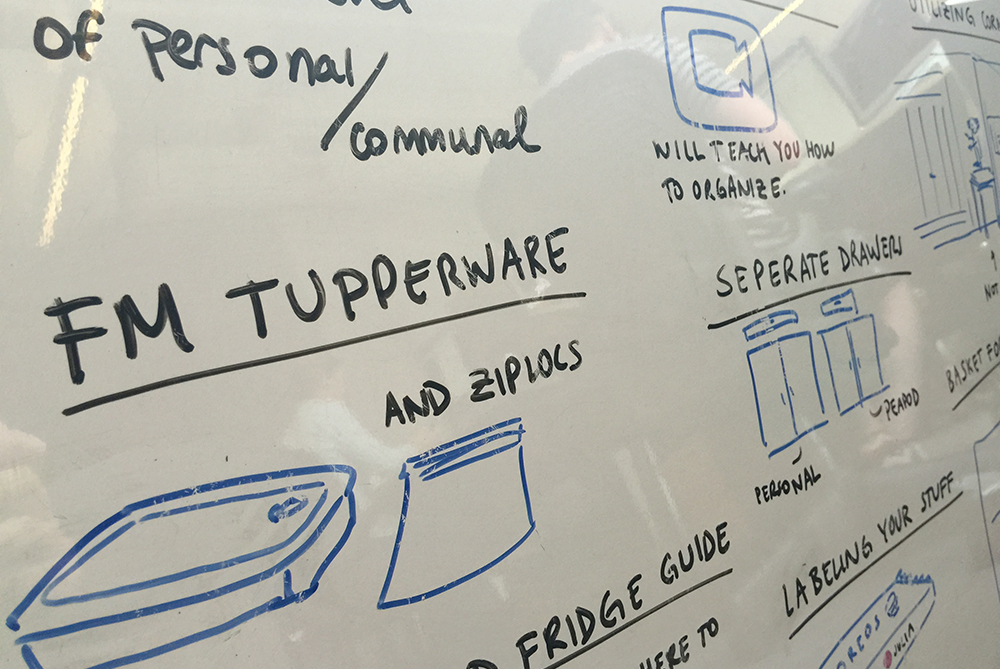 of personal/
communal
FM TUPPERWARE
AND ZIPLOCS
FRIDGE GUIDE
HERE TO
WILL TEACH YOU HOW
TO ORGANIZE.
SEPERATE DRAWERS
PERSONAL
PEAPOD
LABELING YOUR STUFF
OREOS
JULIA
UTILIZING CORN
NOT
BASKET FO